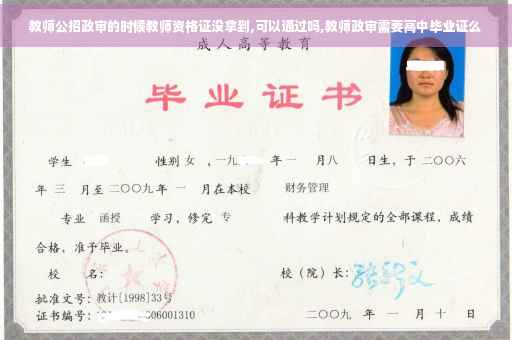 教师公招政审的时候教师资格证没拿到,可以通过吗,教师政审需要高中毕业证么
成人高等教育
毕业证书
学生 性别 女 ,一九 年 一 月 八 日生，于 二〇〇六
年 三 月至 二〇〇九 年 一 月在本校 财务管理
专业 函授 学习，修完 专 科教学计划规定的全部课程，成绩
合格，准予毕业。
校 名： 校（院）长：
批准文号：教计[1998]33号
证书编号： 06001310 二〇〇九 年 一 月 十 日